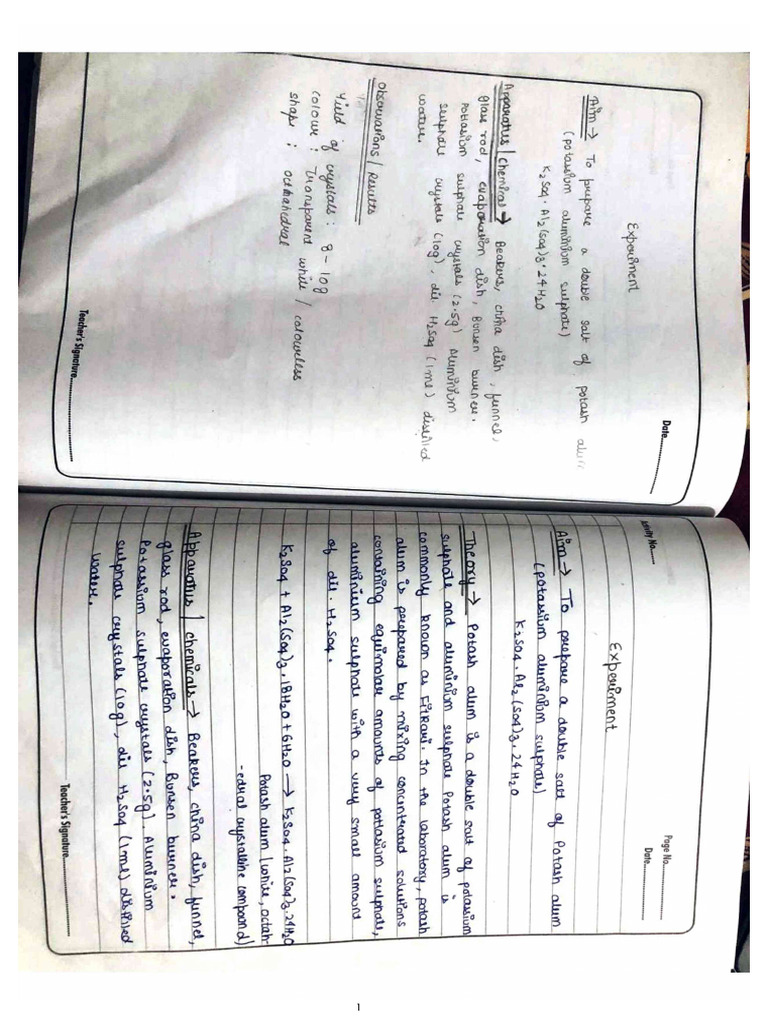 Date.............
Experiment
Aim → To prepare a double salt of potash alum
(potassium aluminium sulphate)
K2SO4.Al2(SO4)3.24H2O
Apparatus / Chemical → Beakers, china dish, funnel,
glass rod, evaporation dish, Bunsen burner.
potassium sulphate crystals (2.5g) Aluminium
sulphate crystals (10g), dil H2SO4 (1ml) distilled
water.
Observations / Results
Yield of crystals : 8-10g
Colour : Transparent white / colourless
shape : octahedral
Teacher's Signature.............
Activity No.......
Page No.............
Date.............
Experiment
Aim → To prepare a double salt of Potash alum
(potassium aluminium sulphate)
K2SO4.Al2(SO4)3.24H2O
Theory → Potash alum is a double salt of potassium
sulphate and aluminium sulphate Potash alum is
commonly known as Fitkari. In the laboratory, potash
alum is prepared by mixing concentrated solutions
containing equimolar amounts of pottasium sulphate,
aluminium sulphate with a very small amount
of dil. H2SO4.
K2SO4 + Al2(SO4)3.18H2O + 6H2O → K2SO4.Al2(SO4)3.24H2O
Potash alum (white, octah-
-edral crystalline compound)
Apparatus / chemicals → Beakers, china dish, funnel,
glass rod, evaporation dish, Bunsen burner.
Potassium sulphate crystals (2.5g). Aluminium
sulphate crystals (10g), dil H2SO4 (1ml) distilled
water.
Teacher's Signature.............
1